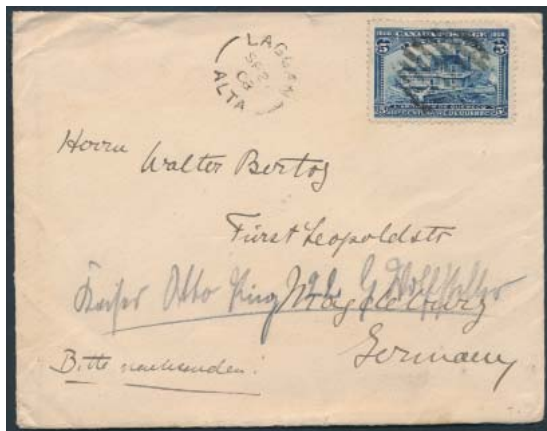 LAGGAN
SP 2
08
ALTA
1608 CANADA POSTAGE 1908
5 5
Herrn Walter Bertog
Fürst Leopoldstr
Kaiser Otto Ring
Magdeburg
Germany
Bitte nachsenden!